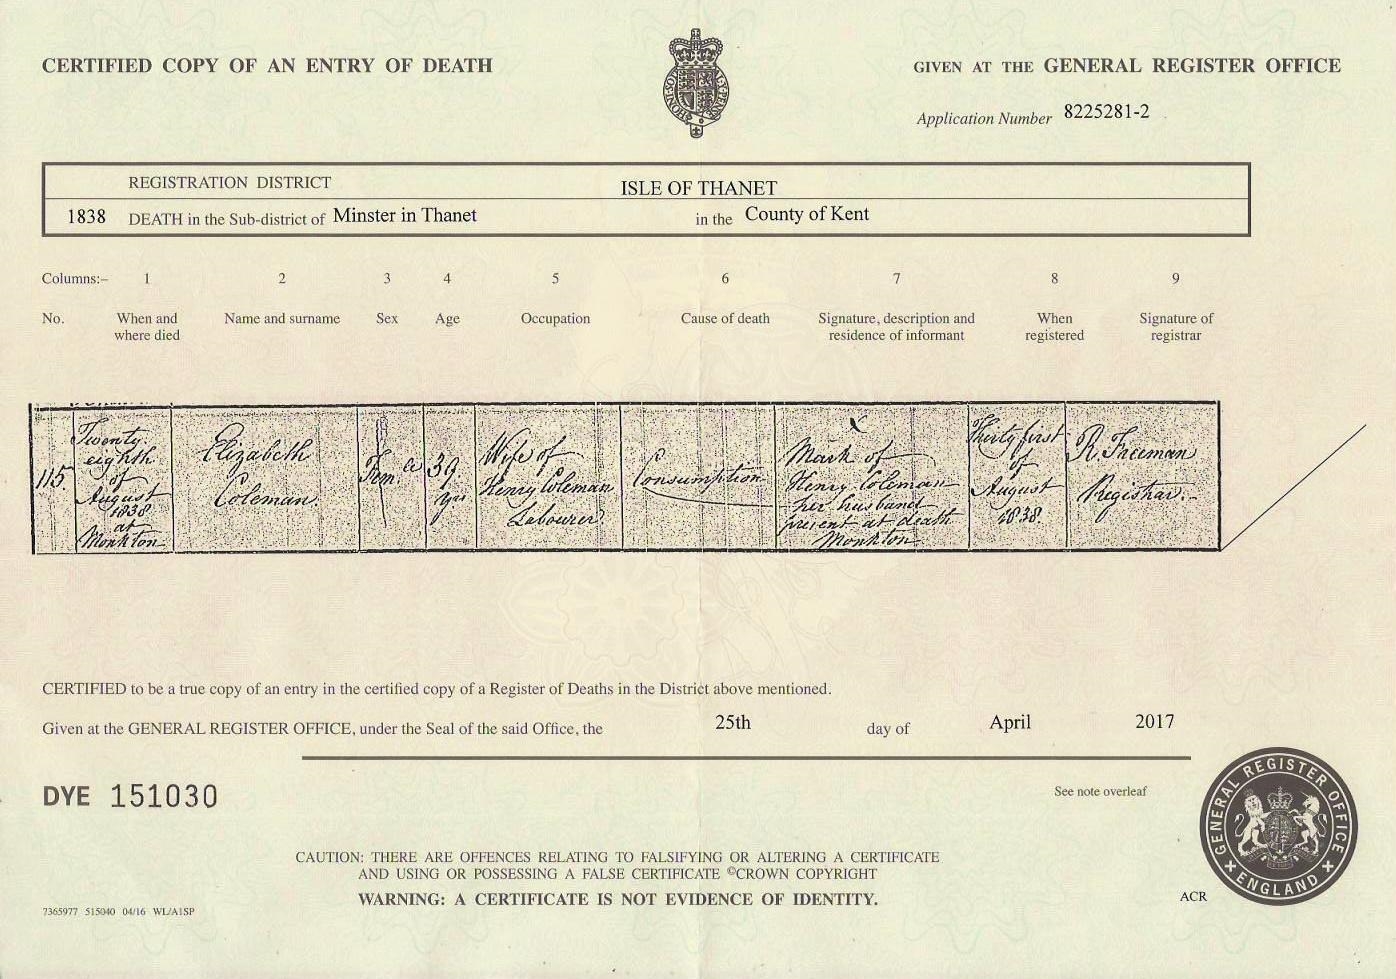 CERTIFIED COPY OF AN ENTRY OF DEATH
GIVEN AT THE GENERAL REGISTER OFFICE
Application Number 8225281-2
REGISTRATION DISTRICT ISLE OF THANET
1838 DEATH in the Sub-district of Minster in Thanet in the County of Kent
Columns:– 1 2 3 4 5 6 7 8 9
No.
When and
where died
Name and surname
Sex
Age
Occupation
Cause of death
Signature, description and
residence of informant
When
registered
Signature of
registrar
115
Twenty
eighth
of
August
1838
at
Monkton
Elizabeth
Coleman
Female
39
yrs
Wife of
Henry Coleman
Labourer
Consumption
X
Mark of
Henry Coleman
her husband
present at death
Monkton
Thirty first
of
August
1838.
R. Freeman
Registrar.
CERTIFIED to be a true copy of an entry in the certified copy of a Register of Deaths in the District above mentioned.
Given at the GENERAL REGISTER OFFICE, under the Seal of the said Office, the 25th day of April 2017
DYE 151030
See note overleaf
GENERAL REGISTER OFFICE
ENGLAND
CAUTION: THERE ARE OFFENCES RELATING TO FALSIFYING OR ALTERING A CERTIFICATE
AND USING OR POSSESSING A FALSE CERTIFICATE ©CROWN COPYRIGHT
WARNING: A CERTIFICATE IS NOT EVIDENCE OF IDENTITY.
ACR
7365977 515040 04/16 WL/A1SP